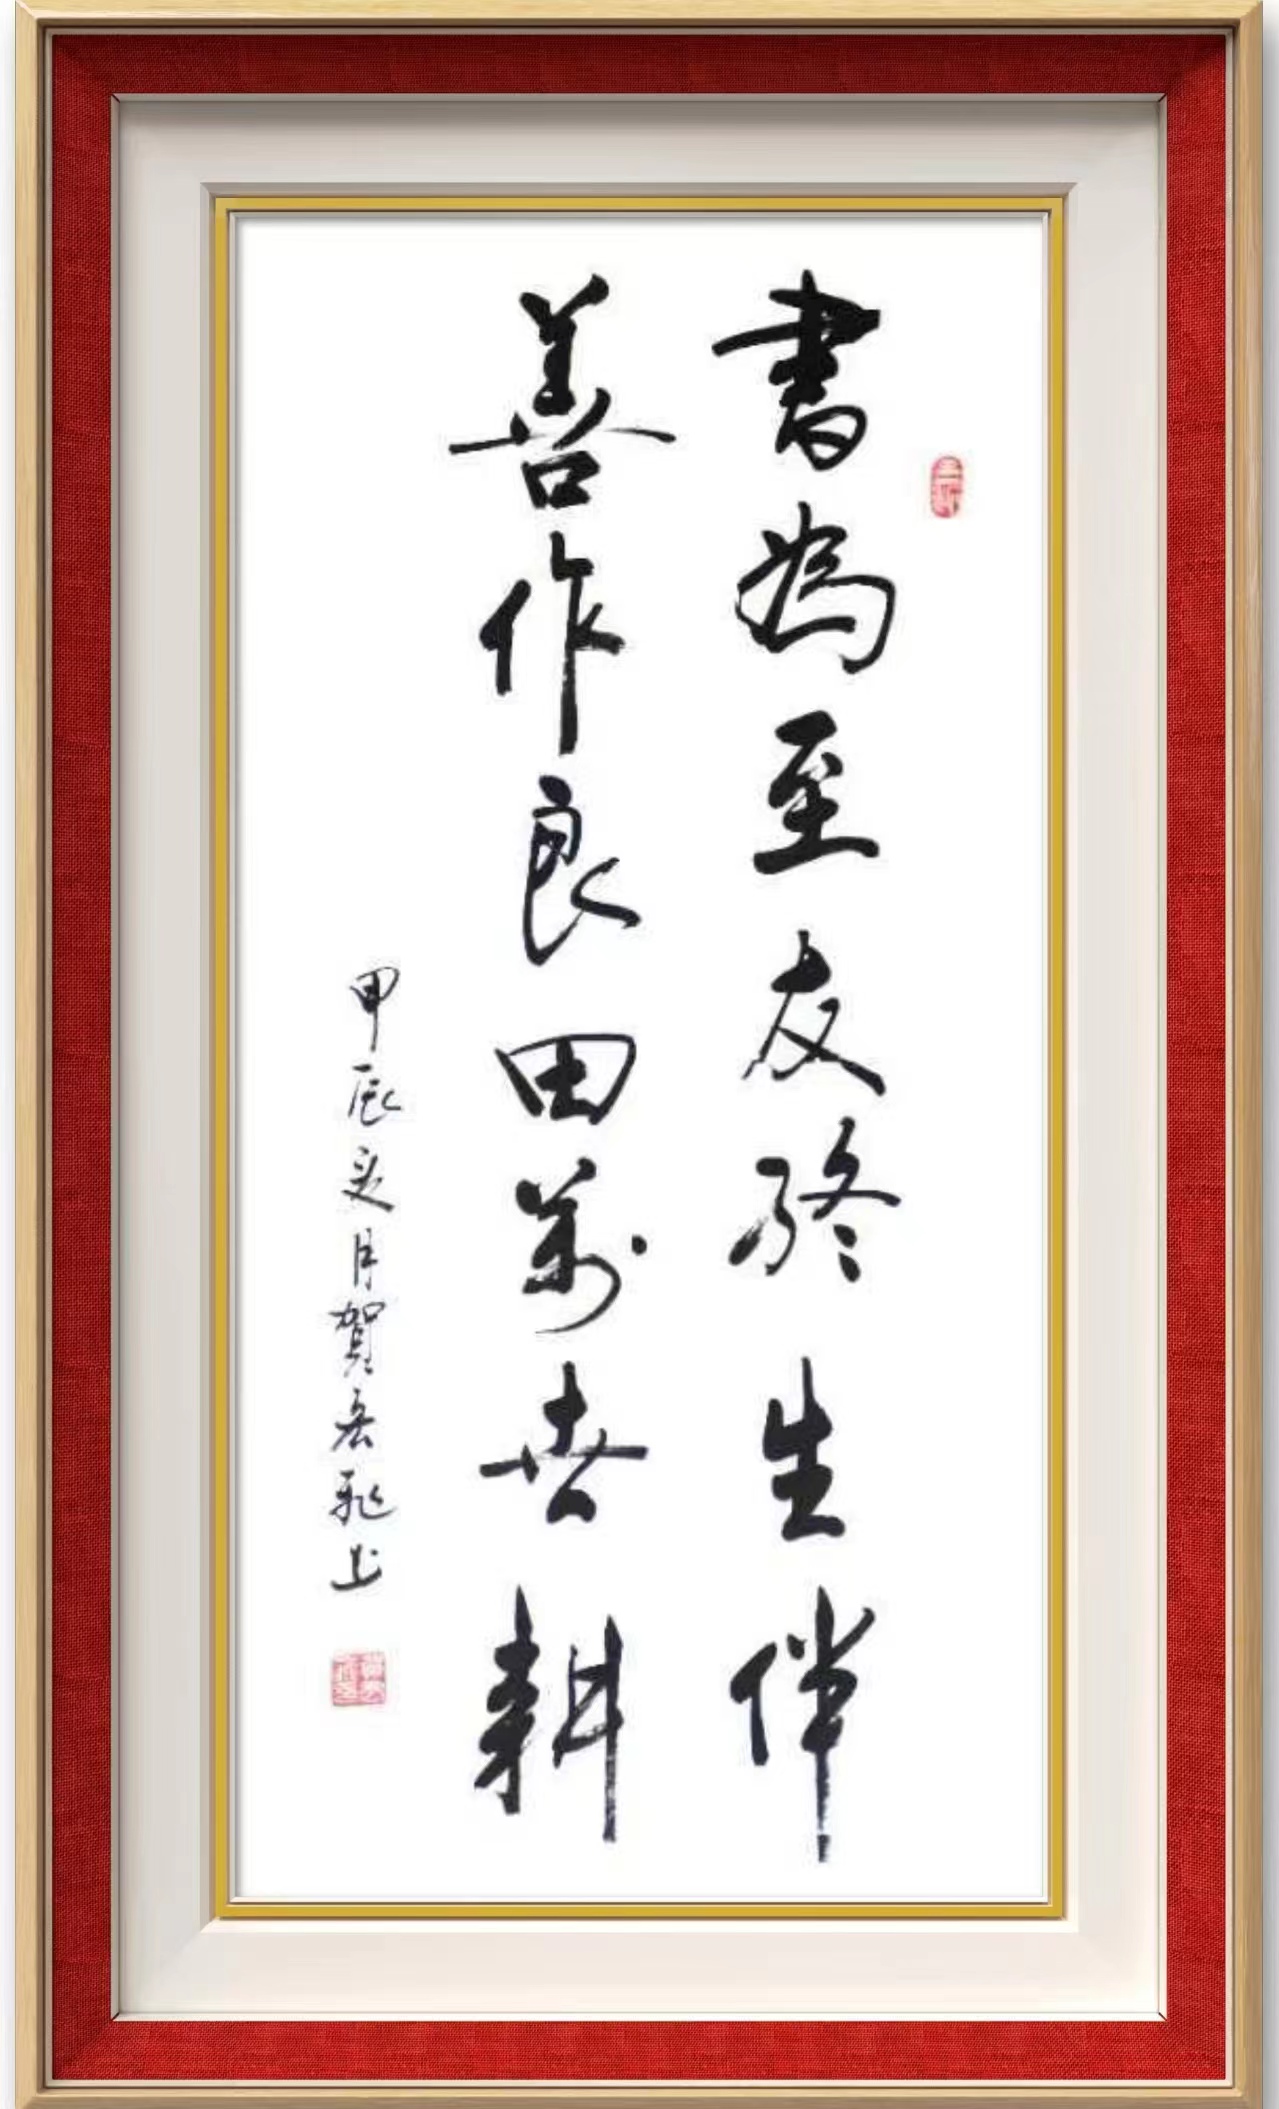 書為至友終生伴
善作良田萬世耕
甲辰夏月賀宏